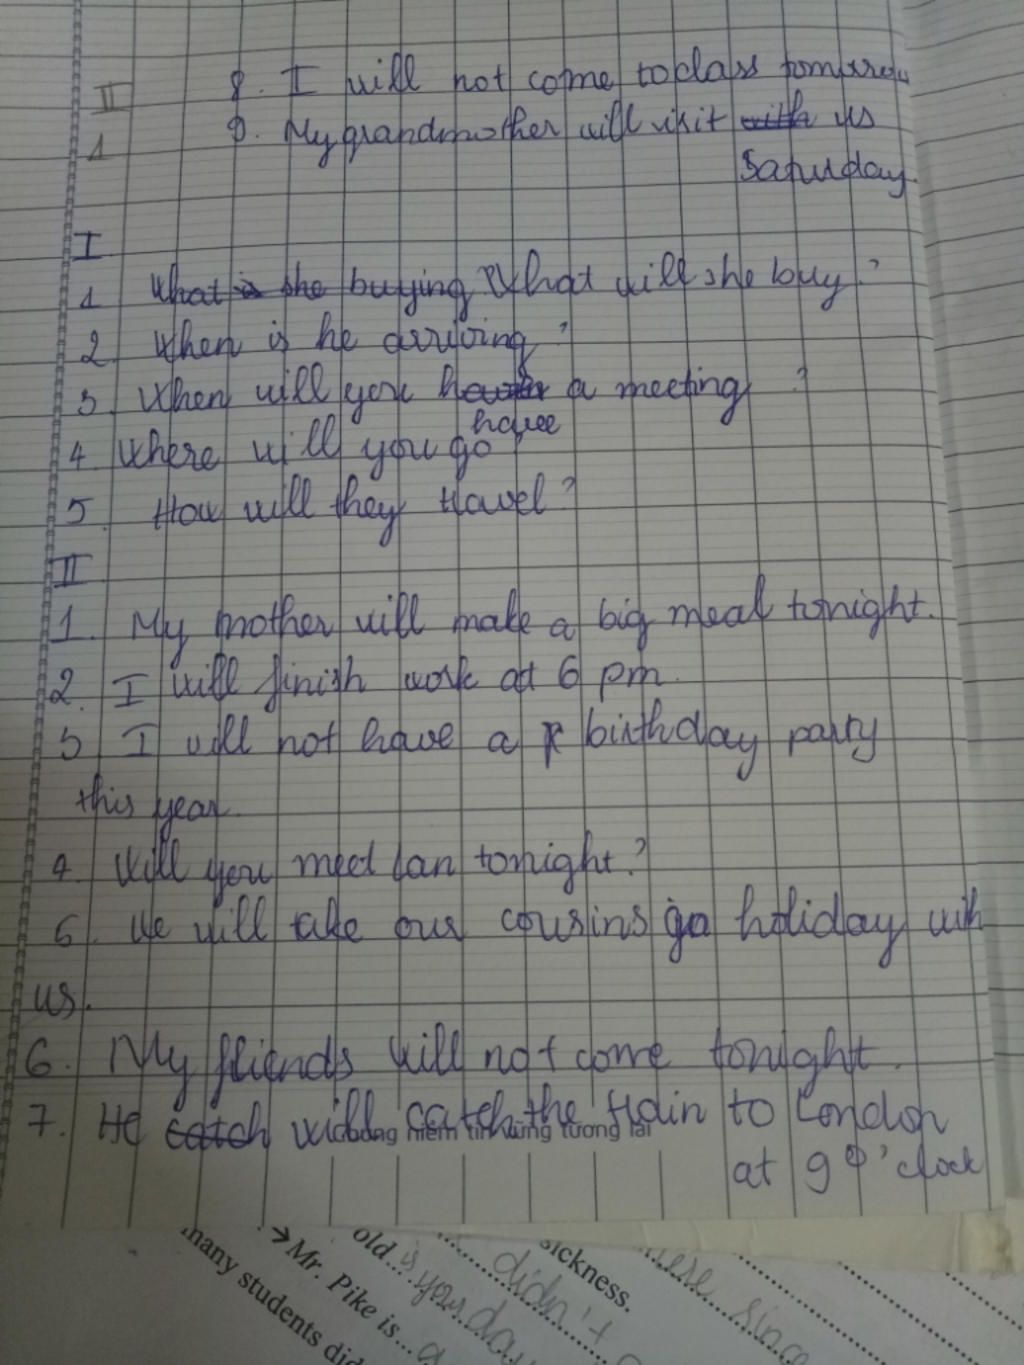 II 8. I will not come to class tomorrow
1 9. My grandmother will visit with us
Saturday.
I
1 What is she buying What will she buy?
2 When is he arriving?
3. When will you a meeting?
have
4. Where will you go?
5. How will they travel?
II
1. My mother will make a big meal tonight.
2. I will finish work at 6 pm.
3 I will not have a birthday party
this year.
4. Will you meet Lan tonight?
5. We will take our cousins go holiday with
us.
6. My friends will not come tonight.
7. He catch will catch the train to London
niềm tin vững tương lai
at 9 o'clock
sickness.
old... is your da
didn't
→ Mr. Pike is...
many students did
were since